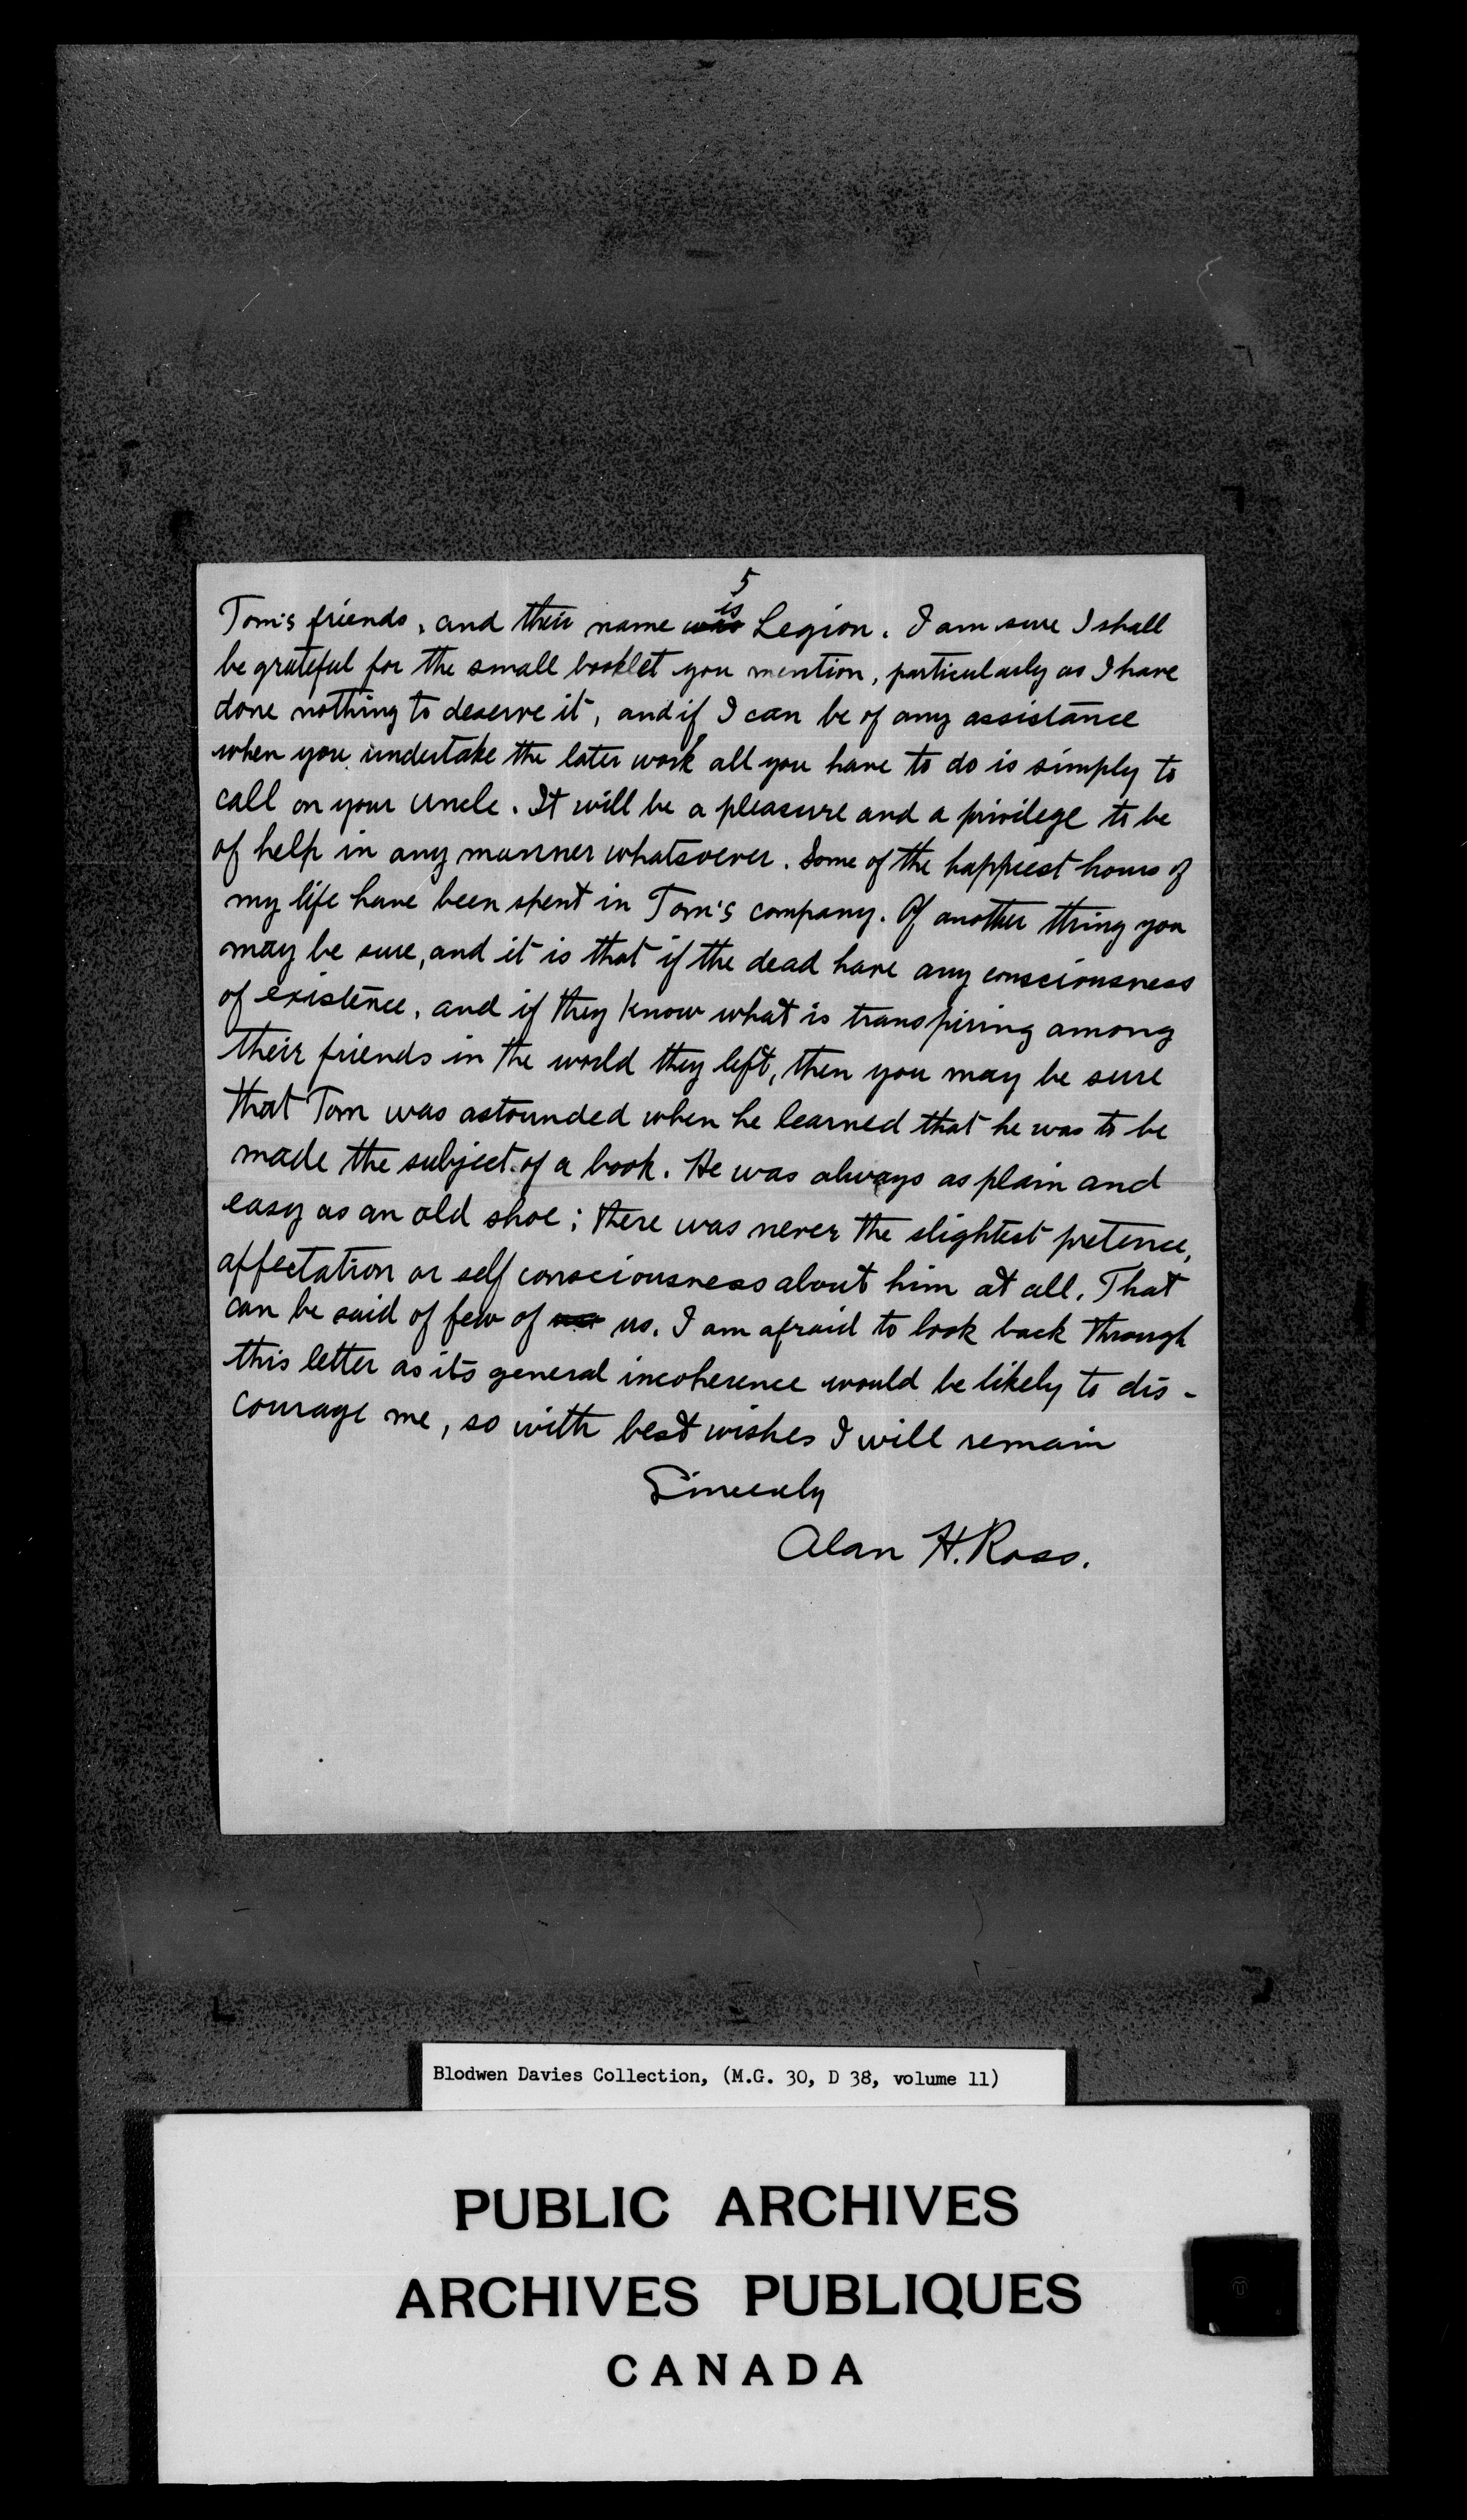 5
Tom's friends, and their name was is Legion. I am sure I shall
be grateful for the small booklet you mention, particularly as I have
done nothing to deserve it, and if I can be of any assistance
when you undertake the later work all you have to do is simply to
call on your uncle. It will be a pleasure and a privilege to be
of help in any manner whatsoever. Some of the happiest hours of
my life have been spent in Tom's company. Of another thing you
may be sure, and it is that if the dead have any consciousness
of existence, and if they know what is transpiring among
their friends in the world they left, then you may be sure
that Tom was astounded when he learned that he was to be
made the subject of a book. He was always as plain and
easy as an old shoe; there was never the slightest pretence,
affectation or self consciousness about him at all. That
can be said of few of us. I am afraid to look back through
this letter as its general incoherence would be likely to dis-
courage me, so with best wishes I will remain
Sincerely
Alan H. Ross.
Blodwen Davies Collection, (M.G. 30, D 38, volume 11)
PUBLIC ARCHIVES
ARCHIVES PUBLIQUES
CANADA